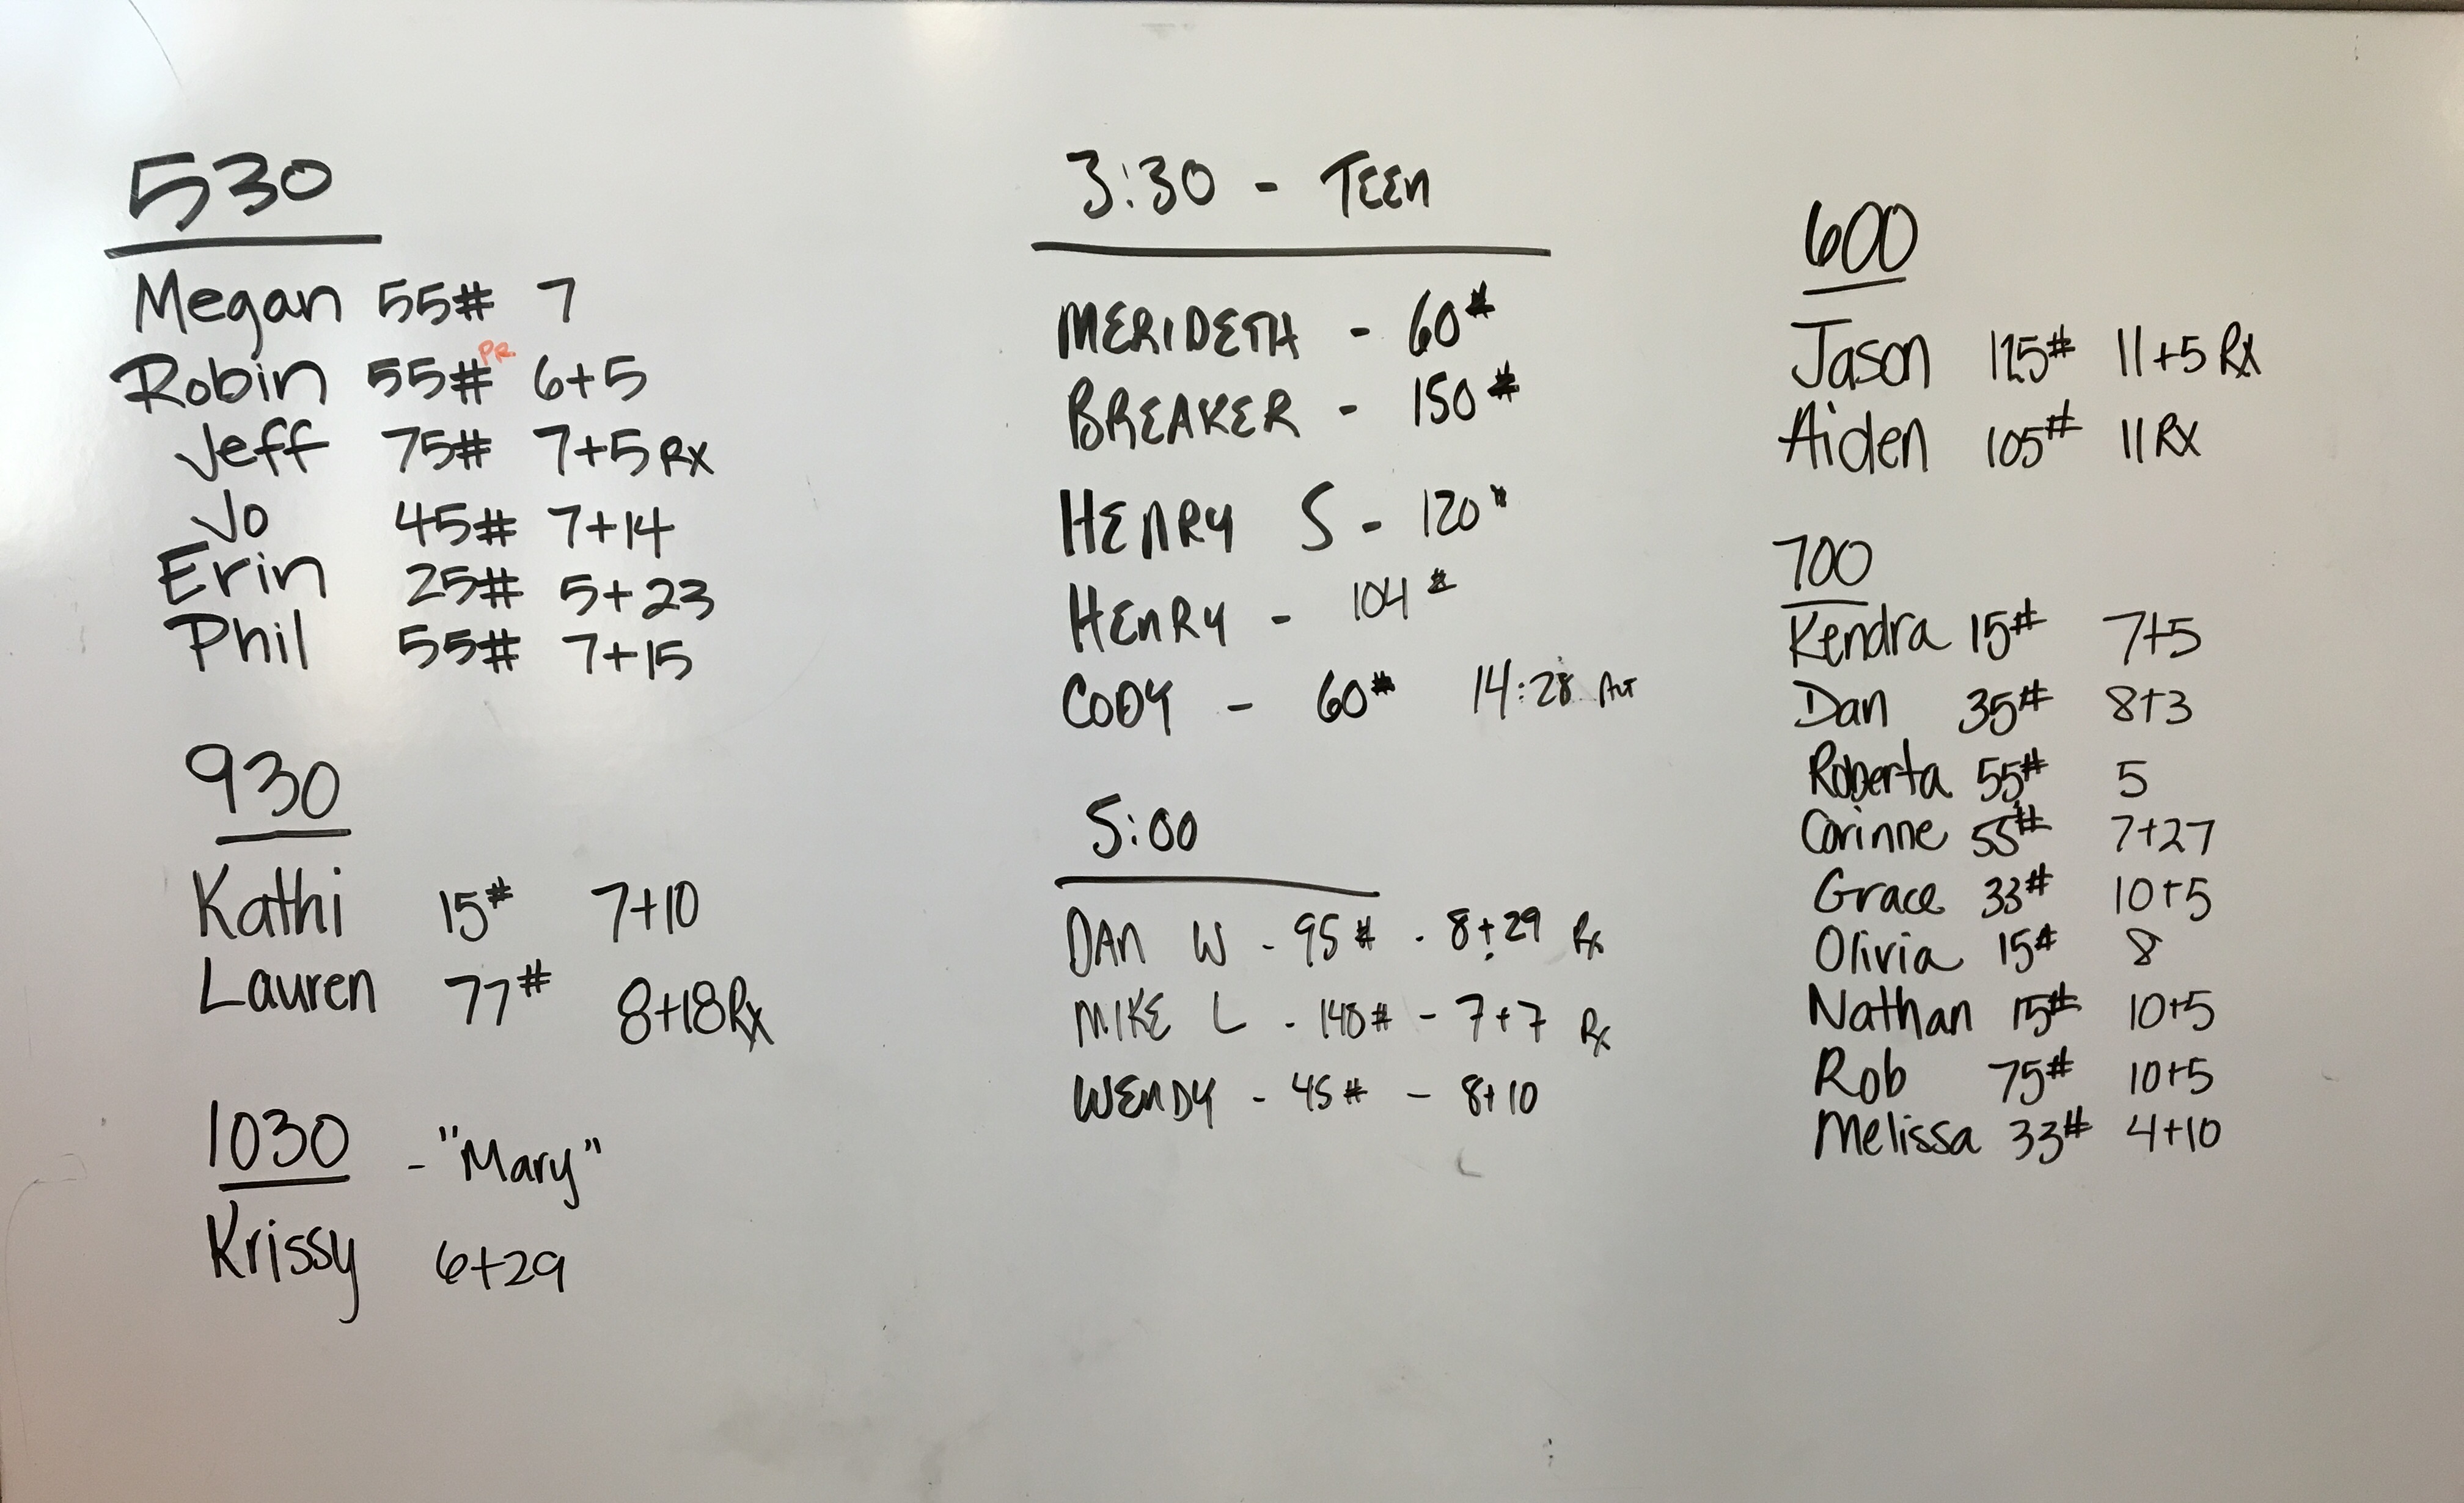 530
Megan 55# 7
Robin 55# PR 6+5
Jeff 75# 7+5 Rx
Jo 45# 7+14
Erin 25# 5+23
Phil 55# 7+15
930
Kathi 15# 7+10
Lauren 77# 8+18 Rx
1030 - "Mary"
Krissy 6+29
3:30 - TEEN
MERIDETH - 60#
BREAKER - 150#
HENRY S - 120#
HENRY - 104#
CODY - 60# 14:28
5:00
DAN W - 95# - 8+29 Rx
MIKE L - 148# - 7+7 Rx
WENDY - 45# - 8+10
600
Jason 125# 11+5 Rx
Aiden 105# 11 Rx
700
Kendra 15# 7+5
Dan 35# 8+3
Roberta 55# 5
Corinne 55# 7+27
Grace 33# 10+5
Olivia 15# 8
Nathan 15# 10+5
Rob 75# 10+5
Melissa 33# 4+10